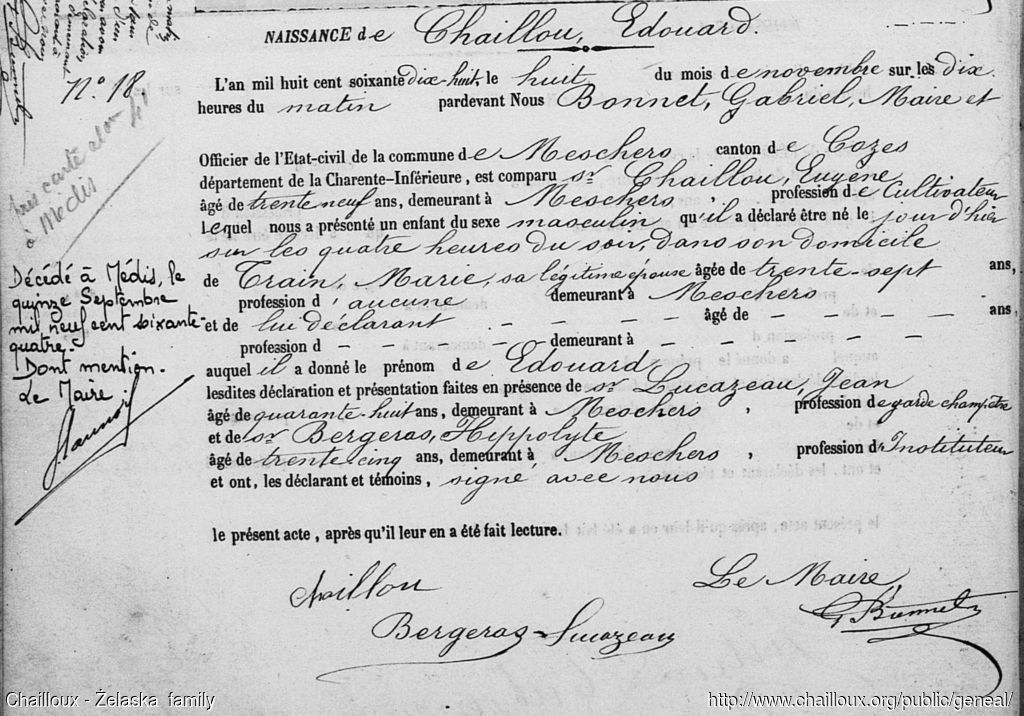 NAISSANCE de Chaillou, Edouard.
N° 18
L'an mil huit cent soixante dix-huit, le huit du mois de novembre sur les dix
heures du matin pardevant Nous Bonnet, Gabriel, Maire et
Officier de l'Etat-civil de la commune de Meschers canton de Cozes
département de la Charente-Inférieure, est comparu sr Chaillou, Eugène
âgé de trente neuf ans, demeurant à Meschers, profession de Cultivateur
Lequel nous a présenté un enfant du sexe masculin qu'il a déclaré être né le jour d'hier
sur les quatre heures du soir, dans son domicile
de Train, Marie, sa légitime épouse âgée de trente-sept ans,
profession d'aucune demeurant à Meschers
et de lui déclarant – – – – âgé de – – – – ans,
profession d – – – – demeurant à – – – – –
auquel il a donné le prénom de Edouard
lesdites déclaration et présentation faites en présence de sr Lucazeau, Jean
âgé de quarante-huit ans, demeurant à Meschers, profession de garde champêtre
et de sr Bergeras, Hippolyte
âgé de trente cinq ans, demeurant à Meschers, profession d'Instituteur
et ont, les déclarant et témoins, signé avec nous
le présent acte, après qu'il leur en a été fait lecture.
Chaillou
Le Maire,
G Bonnet
Bergeras - Lucazeau
à Médis
Décédé à Médis, le
quinze Septembre
mil neuf cent soixante-
quatre.
Dont mention.
Le Maire
Chailloux - Želaska family
http://www.chailloux.org/public/geneal/